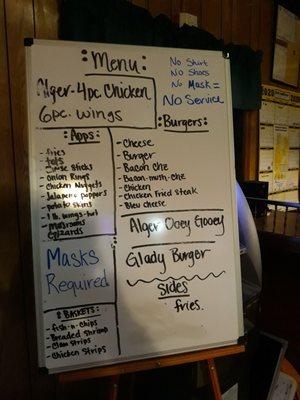 Menu
No Shirt
No Shoes
No Mask =
No Service
Alger-4pc. Chicken
6pc. wings
:Burgers:
:Apps:
- fries
- tots
- Cheese Sticks
- Onion Rings
- Chicken Nuggets
- Jalapeno poppers
- potato skins
- 1 lb. wings-hot
- mushrooms
- Gizzards
- Cheese
- Burger
- Bacon Che
- Bacon-mush-che
- Chicken
- Chicken Fried Steak
- Bleu cheese
Alger Ooey Gooey
Glady Burger
Masks
Required
Sides
fries.
BASKETS
- fish-n-Chips
- Breaded Shrimp
- Clam Strips
- Chicken Strips
2020